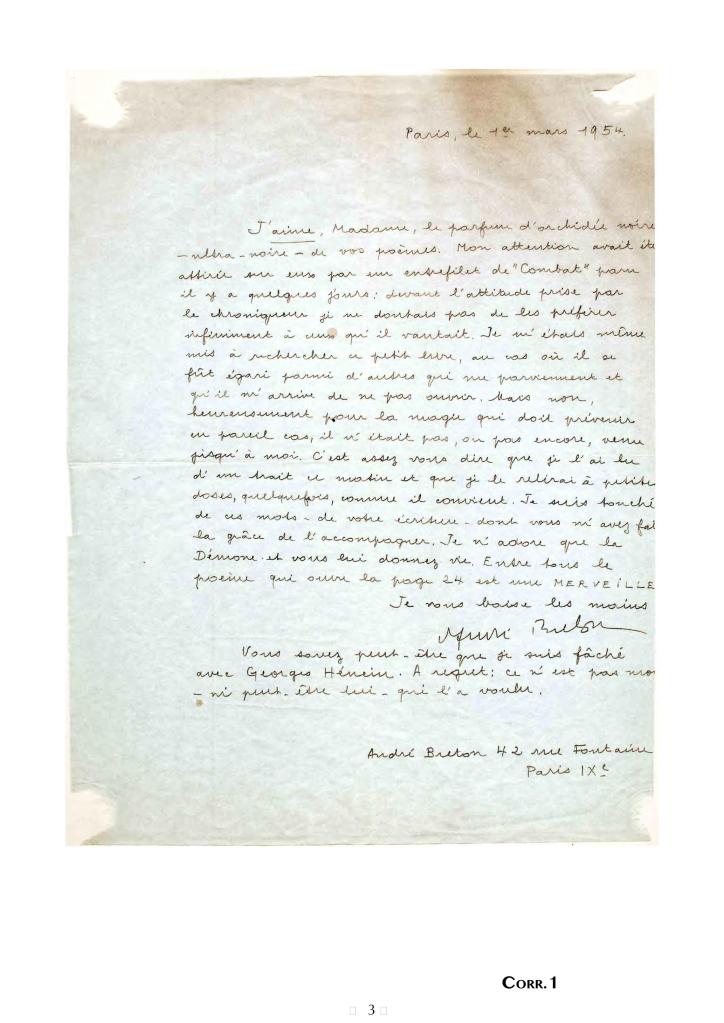 Paris, le 1er mars 1954.
J'aime, Madame, le parfum d'orchidée noire
– ultra-noire – de vos poèmes. Mon attention avait été
attirée sur eux par un entrefilet de "Combat" paru
il y a quelques jours : devant l'attitude prise par
le chroniqueur je ne doutais pas de les préférer
infiniment à ceux qu'il vantait. Je m'étais même
mis à rechercher ce petit livre, au cas où il se
fût égaré parmi d'autres qui me parviennent et
qu'il m'arrive de ne pas ouvrir. Mais non,
heureusement pour la magie qui doit prévenir
en pareil cas, il n'était pas, ou pas encore, venu
jusqu'à moi. C'est assez vous dire que je l'ai lu
d'un trait ce matin et que je le relirai à petites
doses, quelquefois, comme il convient. Je suis touché
de ces mots – de votre écriture – dont vous m'avez fait
la grâce de l'accompagner. Je n'adore que la
Démone et vous lui donnez vie. Entre tous le
poème qui ouvre la page 24 est une MERVEILLE
Je vous baise les mains
André Breton
Vous savez peut-être que je suis fâché
avec Georges Hénein. A regret : ce n'est pas moi
– ni peut-être lui – qui l'a voulu.
André Breton 42 rue Fontaine
Paris IXe
CORR.1
3